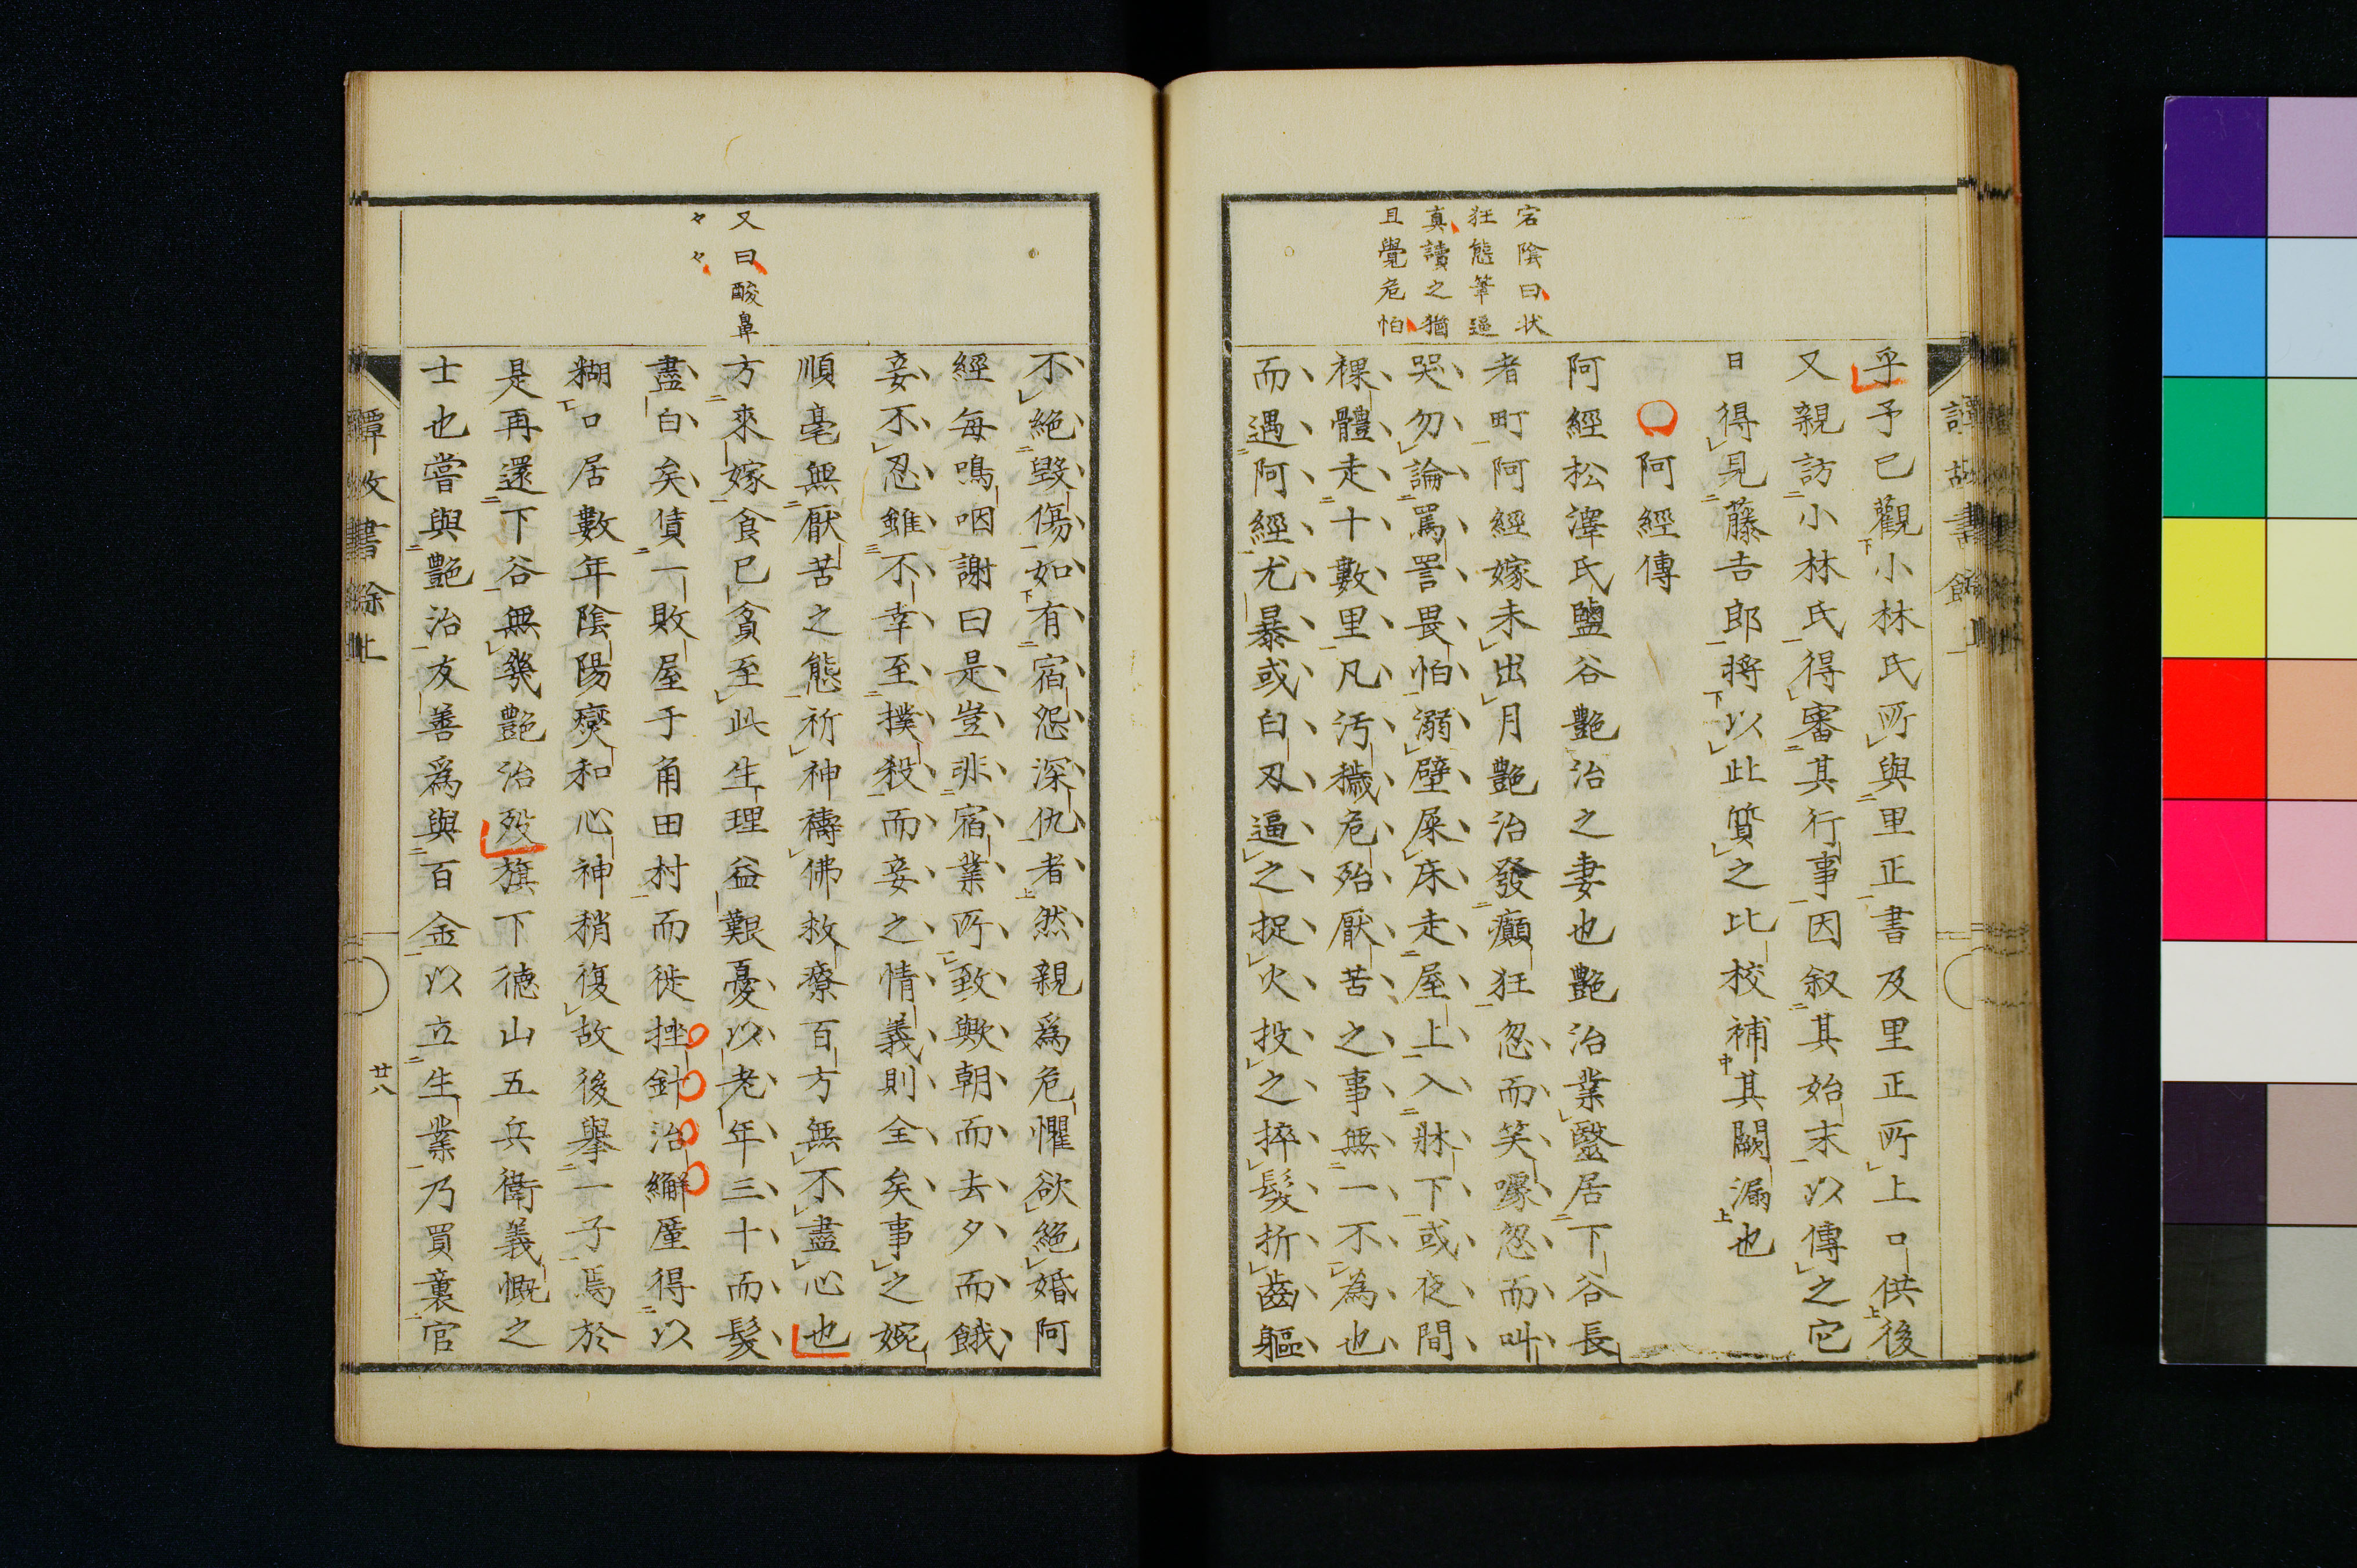 宕陰曰状
狂態筆逼
真讀之猶
且覺危怕
乎予已觀小林氏所與里正書及里正所上口供後
又親訪小林氏得審其行事因叙其始末以傳之它
日得見藤吉郎将以此質之比校補其闕漏也
阿經傳
阿經松澤氏鹽谷艷治之妻也艷治業毉居下谷長
者町阿經嫁未出月艷治發癲狂忽而笑嚎忽而叫
哭勿論罵詈畏怕溺壁屎床走屋上入牀下或夜間
裸體走十數里凡汚穢危殆厭苦之事無一不為也
而遇阿經尤暴或白刄逼之捉火投之捽髮折齒軀
又曰酸鼻
々々
不絕毀傷如有宿怨深仇者然親爲危懼欲絕婚阿
經每鳴咽謝曰是豈非宿業所致歟朝而去夕而餓
妾不忍雖不幸至撲殺而妾之情義則全矣事之婉
順毫無厭苦之態祈神禱佛救療百方無不盡心也
方來嫁食已貧至此生理益艱憂以老年三十而髮
盡白矣債一敗屋于角田村而徙挫針治繲厪得以
糊口居數年陰陽爕和心神稍復故後擧一子焉於
是再還下谷無幾艷治歿旗下德山五兵衛義慨之
士也嘗與艷治友善爲與百金以立生業乃買裏官
譚故書餘上
廿八